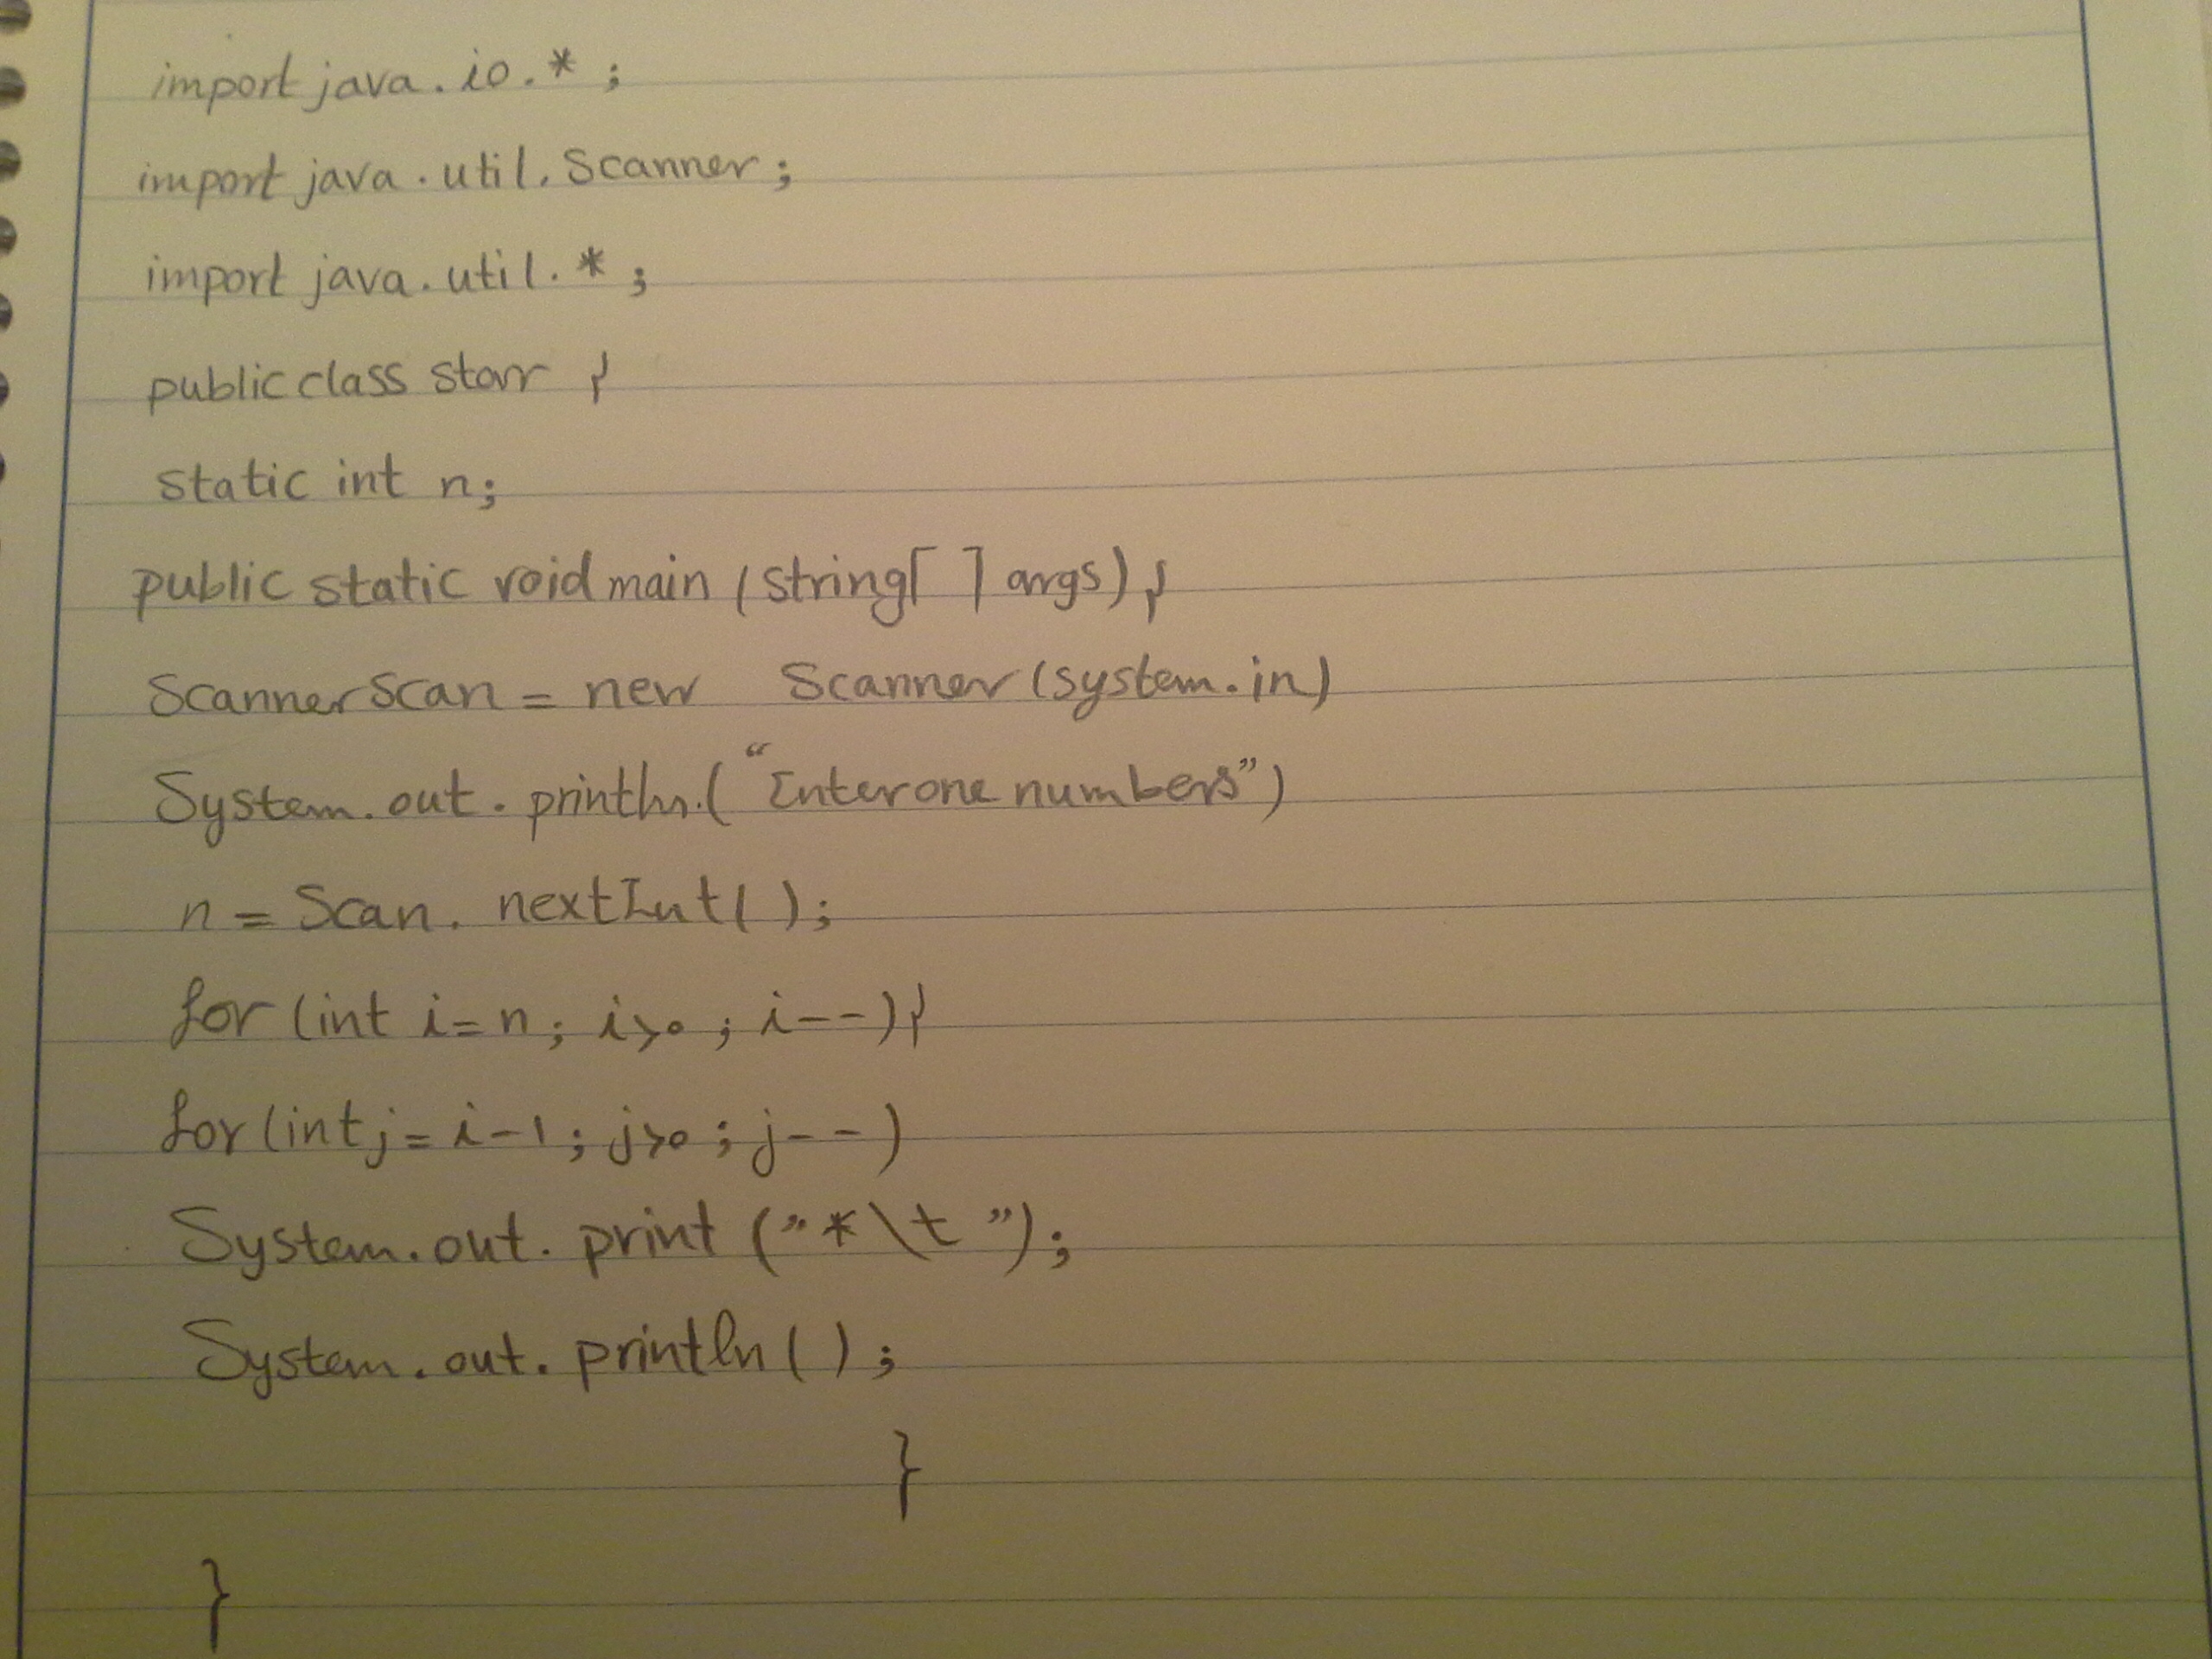 import java.io.*;
import java.util.Scanner;
import java.util.*;
public class starr {
static int n;
public static void main (string[ ] args) {
Scanner Scan = new Scanner (system.in)
System.out.println.( "Enter one numbers")
n = Scan. nextInt( );
for (int i=n; i>0 ; i--){
for (int j= i-1; j>0; j--)
System.out. print ("*\t ");
System.out. println ( );
}
}